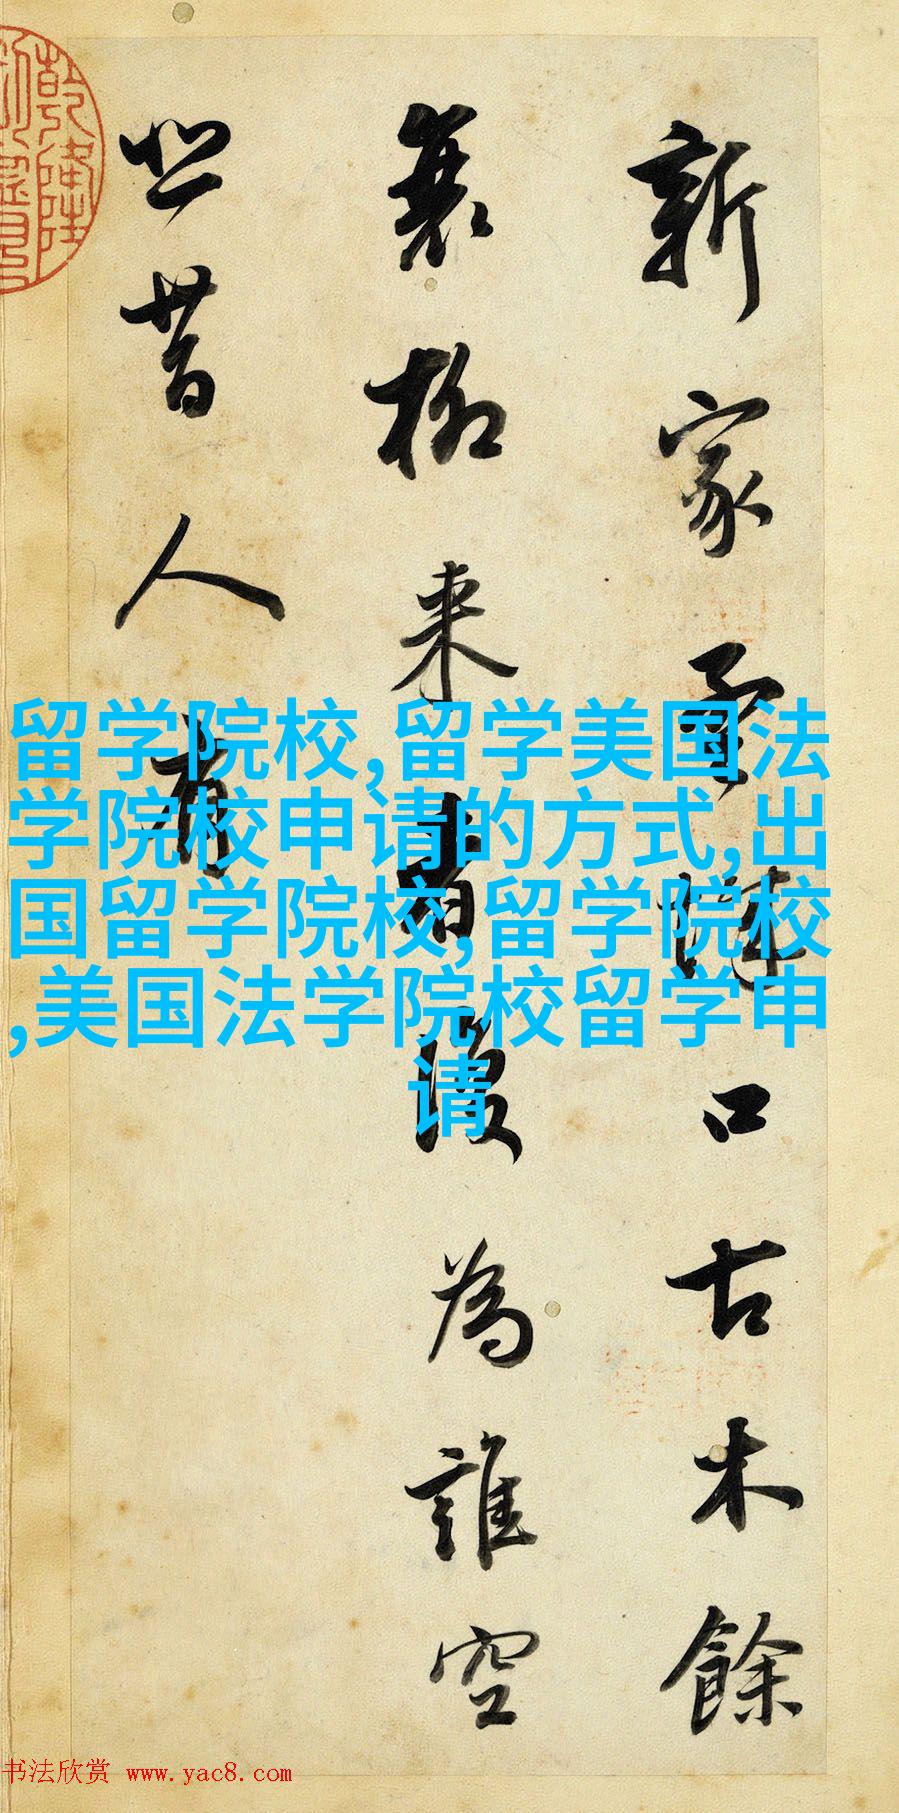 新家孟城口古木餘
衰柳来者復為誰空
悲昔人有
乾隆
留学院校,留学美国法
学院校申请的方式,出
国留学院校,留学院校
,美国法学院校留学申
请
书法欣赏 www.yac8.com